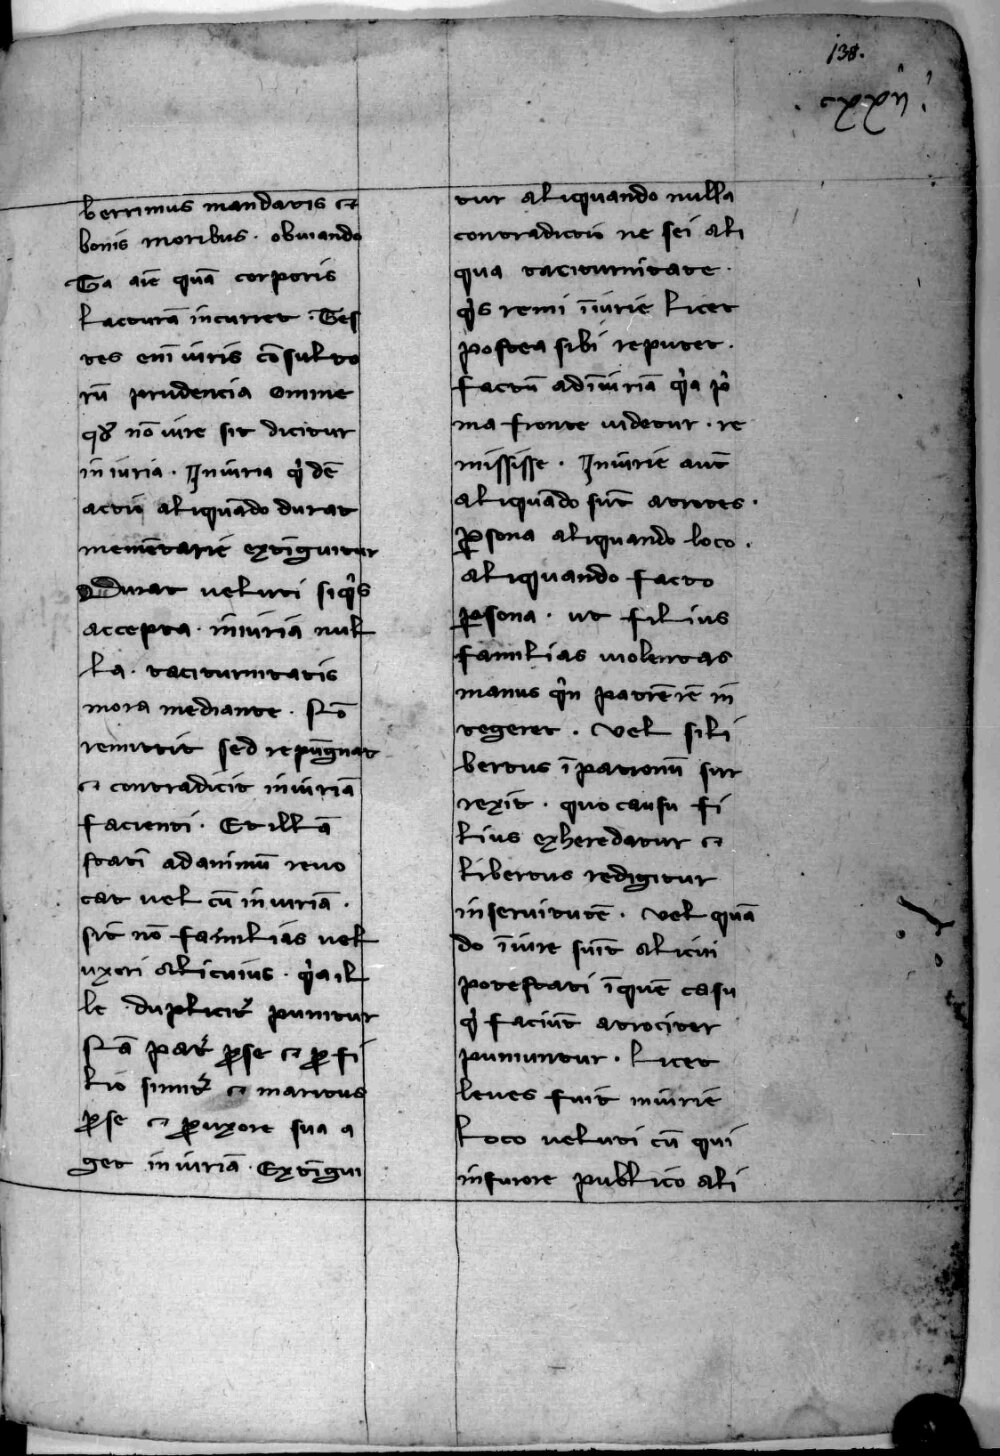 138.
cxxxii
berrimus mandatis ⁊
bonis moribus · obuiando
Ta aīe quā corporis
lacturā incurret · Tes
tes enī iuris cōsulto
rū prudencia omne
qđ nō iure fit dicitur
iniuria · Iniuria q̇dē
actio aliquādo durat
extīguitur
Durat veluti siq̇s
accepta · iniuria nul
la · taciturnitatis
mora mediante · Nō
remittit sed repūgnat
⁊ contradicit iniuriā
facienti · Et illā
statī ad animū reuo
cat vel cū iniuriā ·
fit nō familias vel
vxori alicuius · q̇a il
le duplicit̉ punitur
Nā pat̉ ꝑse ⁊ ꝓ fi
lio simit̉ ⁊ maritus
ꝑse ⁊ ꝓ vxore sua a
get iniuriā · Extīgui
tur aliquando nulla
contradictio ne sei ali
qua taciturnitate ·
q̇s remi īiurie licet
postea sibi reputet ·
factū ad īiuriā q̇a p̉i
ma fronte videtur · re
mississe · Iniurie aūt
aliquādo sūt atroces ·
ꝑsona aliquando loco ·
aliquando facto
ꝑsona · ut filius
familias violentas
manus q̇n patrē rē in
tegeret · Vel si li
bertus ī patronū sur
rexit · quo casu fi
lius exheredatur ⁊
libertus redigitur
in seruitutē · Vel quā
do īiure fiūt alicui
potestati ī quē casu
q̇ faciūt atrociter
puniuntur · licet
leues fuīt iniurie
Loco veluti cū qui
in furore publico ali